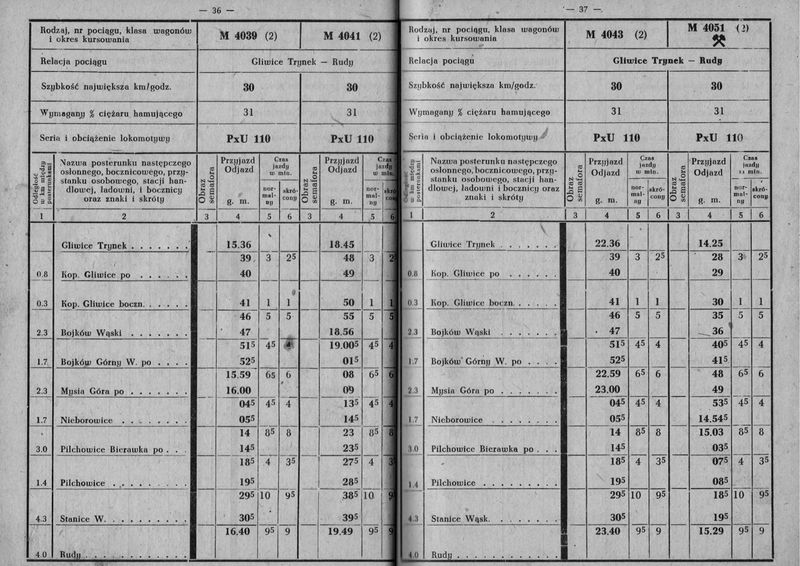 — 36 —
Rodzaj, nr pociągu, klasa wagonów
i okres kursowania
M 4039 (2)
M 4041 (2)
Relacja pociągu
Gliwice Trynek — Rudy
Szybkość największa km/godz.
30
30
Wymagany % ciężaru hamującego
31
31
Seria i obciążenie lokomotywy
PxU 110
PxU 110
Odległość
w km między
posterunkami
Nazwa posterunku następczego
osłonnego, bocznicowego, przy-
stanku osobowego, stacji han-
dlowej, ładowni, i bocznicy
oraz znaki i skróty
Obraz
semafora
Przyjazd
Odjazd
g. m.
Czas
jazdy
w min.
nor-
mal-
ny
skró-
cony
Obraz
semafora
Przyjazd
Odjazd
g. m.
Czas
jazdy
w min.
nor-
mal-
ny
1 2 3 4 5 6 3 4 5 6
Gliwice Trynek . . . . . . . 15.36 18.45
39 3 2⁵ 48 3
0.8 Kop. Gliwice po . . . . . . 40 49
0.3 Kop. Gliwice boczn. . . . . . 41 1 1 50 1 1
46 5 5 55 5 5
2.3 Bojków Wąski . . . . . . . 47 18.56
51⁵ 4⁵ 19.00⁵ 4⁵ 4
1.7 Bojków Górny W. po . . . . 52⁵ 01⁵
15.59 6⁵ 6 08 6⁵ 6
2.3 Mysia Góra po . . . . . . . 16.00 09
04⁵ 4⁵ 4 13⁵ 4⁵ 4
1.7 Nieborowice . . . . . . . . 05⁵ 14⁵
14 8⁵ 8 23 8⁵ 8
3.0 Pilchowice Bierawka po . . . 14⁵ 23⁵
18⁵ 4 3⁵ 27⁵ 4
1.4 Pilchowice . . . . . . . . . 19⁵ 28⁵
29⁵ 10 9⁵ 38⁵ 10
4.3 Stanice W. . . . . . . . . . 30⁵ 39⁵
16.40 9⁵ 9 19.49 9⁵ 9
4.0 Rudy . . . . . . . . . . . .
— 37 —
Rodzaj, nr pociągu, klasa wagonów
i okres kursowania
M 4043 (2)
M 4051 (2)
⚒
Relacja pociągu
Gliwice Trynek — Rudy
Szybkość największa km/godz.
30
30
Wymagany % ciężaru hamującego
31
31
Seria i obciążenie lokomotywy
PxU 110
PxU 110
w km między
posterunkami
Nazwa posterunku następczego
osłonnego, bocznicowego, przy-
stanku osobowego, stacji han-
dlowej, ładowni i bocznicy oraz
znaki i skróty
Obraz
semafora
Przyjazd
Odjazd
g. m.
Czas
jazdy
w min.
nor-
mal-
ny
skró-
cony
Obraz
semafora
Przyjazd
Odjazd
g. m.
Czas
jazdy
w min.
nor-
mal-
ny
skró-
cony
1 2 3 4 5 6 3 4 5 6
Gliwice Trynek . . . . . . . 22.36 14.25
39 3 2⁵ 28 3 2⁵
0.8 Kop. Gliwice po . . . . . . 40 29
0.3 Kop. Gliwice boczn. . . . . . 41 1 1 30 1 1
46 5 5 35 5 5
2.3 Bojków Wąski . . . . . . . 47 36
51⁵ 4⁵ 4 40⁵ 4⁵ 4
1.7 Bojków Górny W. po . . . . 52⁵ 41⁵
22.59 6⁵ 6 48 6⁵ 6
2.3 Mysia Góra po . . . . . . . 23.00 49
04⁵ 4⁵ 4 53⁵ 4⁵ 4
1.7 Nieborowice . . . . . . . . 05⁵ 14.54⁵
14 8⁵ 8 15.03 8⁵ 8
3.0 Pilchowice Bierawka po . . . 14⁵ 03⁵
18⁵ 4 3⁵ 07⁵ 4 3⁵
1.4 Pilchowice . . . . . . . . . 19⁵ 08⁵
29⁵ 10 9⁵ 18⁵ 10 9⁵
4.3 Stanice Wąsk. . . . . . . . 30⁵ 19⁵
23.40 9⁵ 9 15.29 9⁵ 9
4.0 Rudy . . . . . . . . . . . .